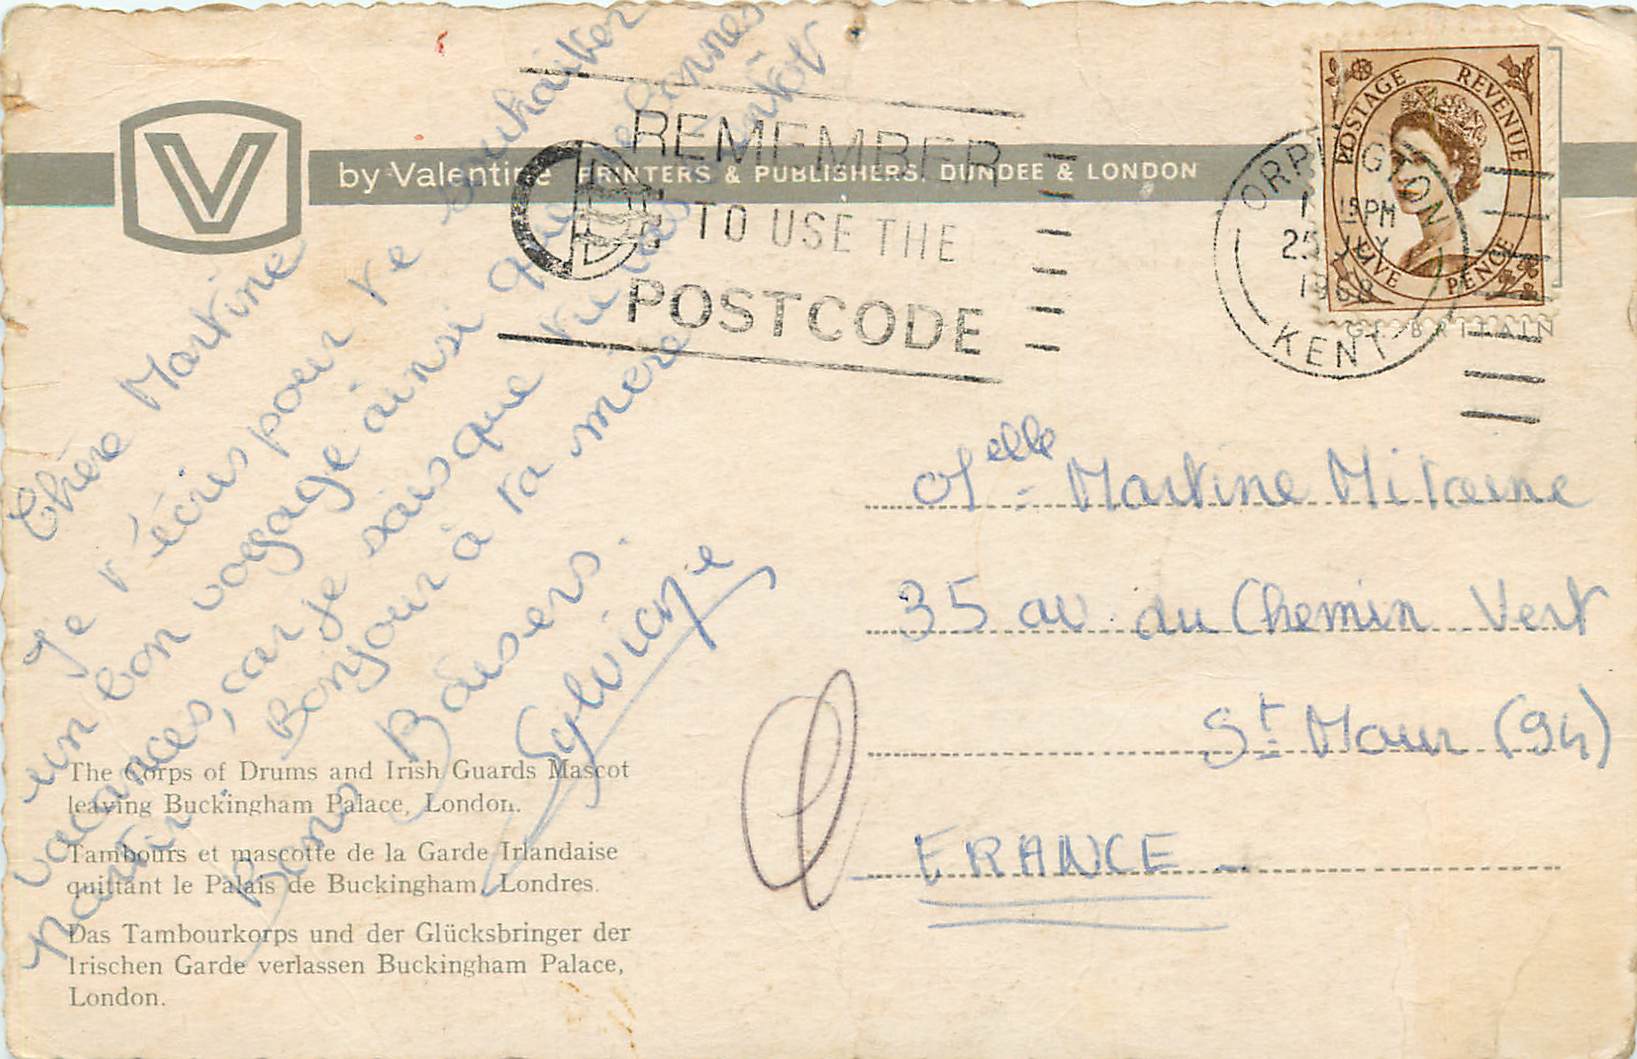 V
by Valentine PRINTERS & PUBLISHERS, DUNDEE & LONDON
REMEMBER
TO USE THE
POSTCODE
ORPINGTON
15 PM
25 JLY
1968
KENT
POSTAGE REVENUE
FIVE PENCE
GT. BRITAIN
Chère Martine
Je t'écris pour te souhaiter
un bon voyage ainsi que de bonnes
vacances, car je sais que tu vas bientôt
partir. Bonjour à ta mère
Bons Baisers.
Sylviane
Melle Martine Mitaine
35 av. du Chemin Vert
St Maur (94)
FRANCE
The Corps of Drums and Irish Guards Mascot
leaving Buckingham Palace, London.
Tambours et mascotte de la Garde Irlandaise
quittant le Palais de Buckingham, Londres.
Das Tambourkorps und der Glücksbringer der
Irischen Garde verlassen Buckingham Palace,
London.